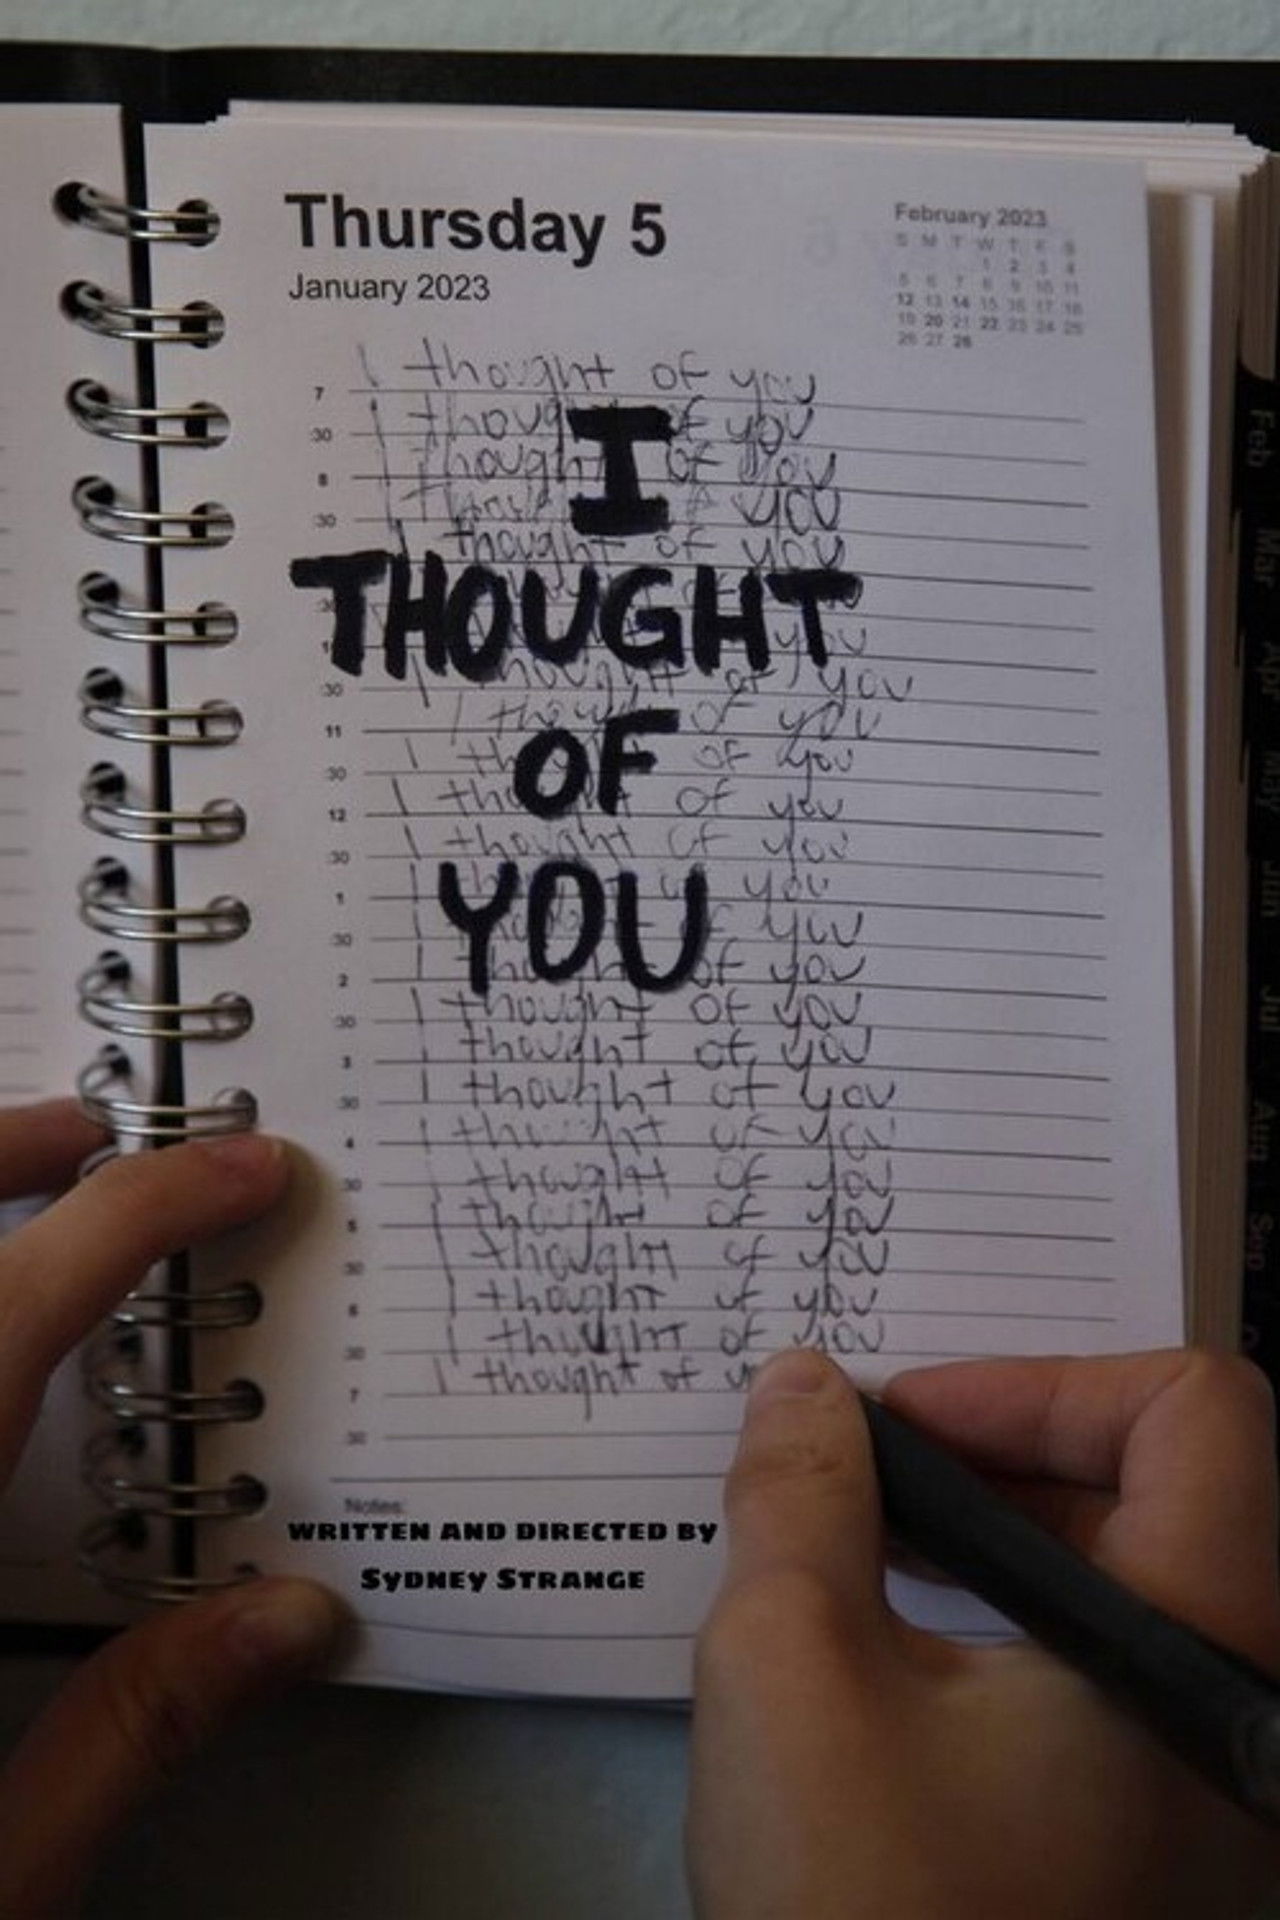 Thursday 5
January 2023
February 2023
S M T W T F S
1 2 3 4
5 6 7 8 9 10 11
12 13 14 15 16 17 18
19 20 21 22 23 24 25
26 27 28
I thought of you
7
I thought of you
:30
I thought of you
8
you
:30
I thought of you
I
THOUGHT
OF
YOU
you
I thought of you
:30
I thought of you
11
I of you
:30
I of you
12
I thought of you
:30
I you
1
I of you
:30
I of you
2
I thought of you
:30
I thought of you
3
I thought of you
:30
I thought of you
4
I thought of you
:30
I thought of you
5
I thought of you
:30
I thought of you
6
I thought of you
:30
I thought of
7
:30
Notes:
WRITTEN AND DIRECTED BY
SYDNEY STRANGE
Feb
Mar
Apr
May
Jun
Jul
Aug
Sep